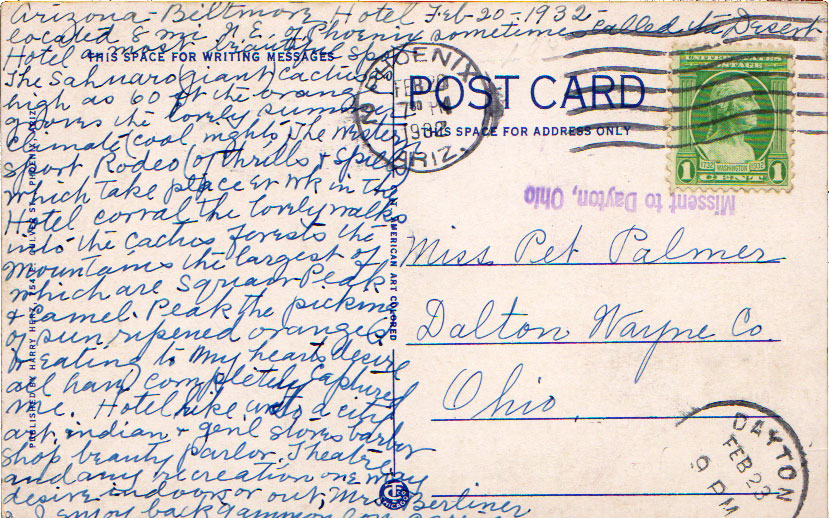 Arizona-Biltmore Hotel Feb-20-1932-
located 8 mi N.E. of Phoenix sometimes called the Desert
Hotel a most beautiful spot
The Sahuaro (giant) Cactus
high as 60 ft the orange
groves the lovely summer
climate (cool nights) The Western
Sport Rodeo (of thrills & spills)
which take place ev wk in the
Hotel corral the lovely walks
into the cactus forests the
mountains the largest of
which are Squaw Peak
& Camel Peak the picking
of sun ripened oranges
(& eating to my hearts desire
all have completely captured
me. Hotel like unto a city
art, indian & genl stores barber
shop beauty parlor, Theatre
and any recreation one may
desire indoors or out, Mrs Berliner
& I enjoy backgammon
THIS SPACE FOR WRITING MESSAGES
PUBLISHED BY HARRY HERZ, PHOENIX, ARIZ.
AMERICAN ART COLORED
PHOENIX
FEB
7 30 PM
193
ARIZ.
POST CARD
THIS SPACE FOR ADDRESS ONLY
UNITED STATES
POSTAGE
1732 WASHINGTON 1932
1 CENT 1
Missent to Dayton, Ohio
Miss Pet Palmer
Dalton Wayne Co.
Ohio.
DAYTON
FEB 23
9 PM